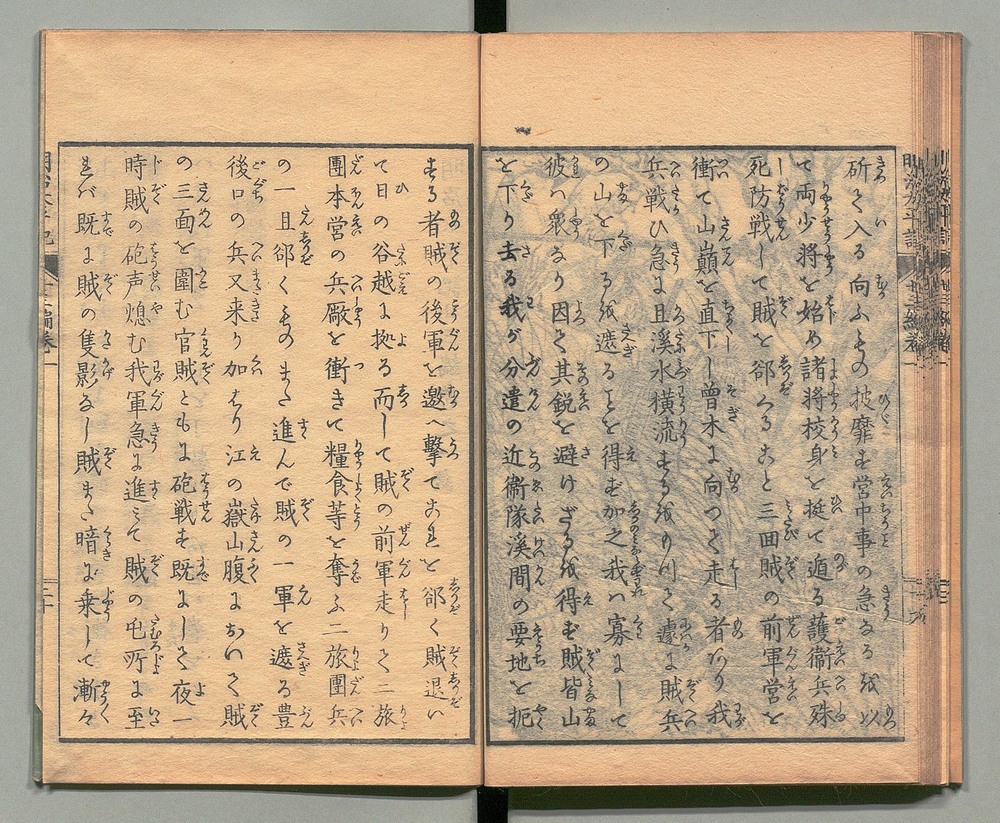 斫て入る向ふもの披靡す営中事の急なるを以
て両少将を始め諸将校身を挺て遁る護衛兵殊
死防戦して賊を郤くること三回賊の前軍営を
衝て山巓を直下し曽木に向つて走る者あり我
兵戦ひ急に且溪水横流するを以て遽に賊兵
の山を下るを遮ることを得ず加之我ハ寡にして
彼ハ衆なり因て其鋭を避けざるを得ず賊皆山
を下り去る我が分遣の近衛隊溪間の要地を扼
する者賊の後軍を邀へ撃てこれを郤く賊退い
て日の谷越に拠る而して賊の前軍走りて二旅
團本営の兵厰を衝きて糧食等を奪ふ二旅團兵
の一且郤くものまた進んで賊の一軍を遮る豊
後口の兵又来り加はり江の嶽山腹において賊
の三面を圍む官賊ともに砲戦す既にして夜一
時賊の砲声熄む我軍急に進て賊の屯所に至
れバ既に賊の隻影なし賊また暗に乗して漸々
明治太平記
十二編巻一
二十